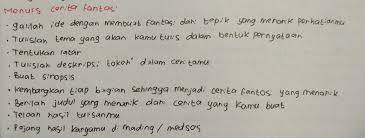 Menulis cerita fantasi
• galilah ide dengan membuat fantasi dari topik yang menarik perhatianmu
• Tulislah tema yang akan kamu tulis dalam bentuk pernyataan
• Tentukan latar
• Tulislah deskripsi tokoh dalam ceritamu
• Buat sinopsis
• kembangkan tiap bagian sehingga menjadi cerita fantasi yang menarik
• Berilah judul yang menarik dari cerita yang kamu buat
• Telaah hasil tulisanmu
• Pajang hasil karyamu di mading / medsos